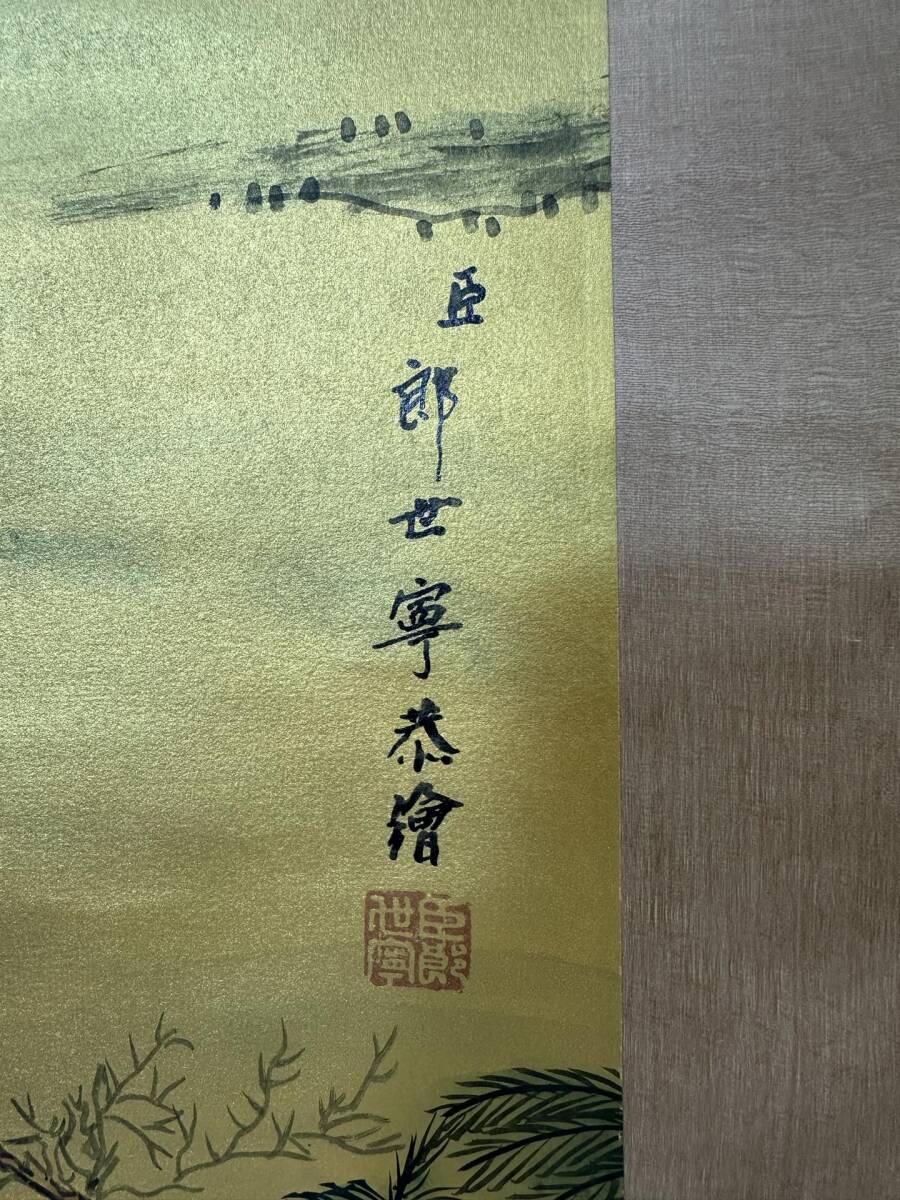 臣郎世寧恭繪
臣郎
世寧